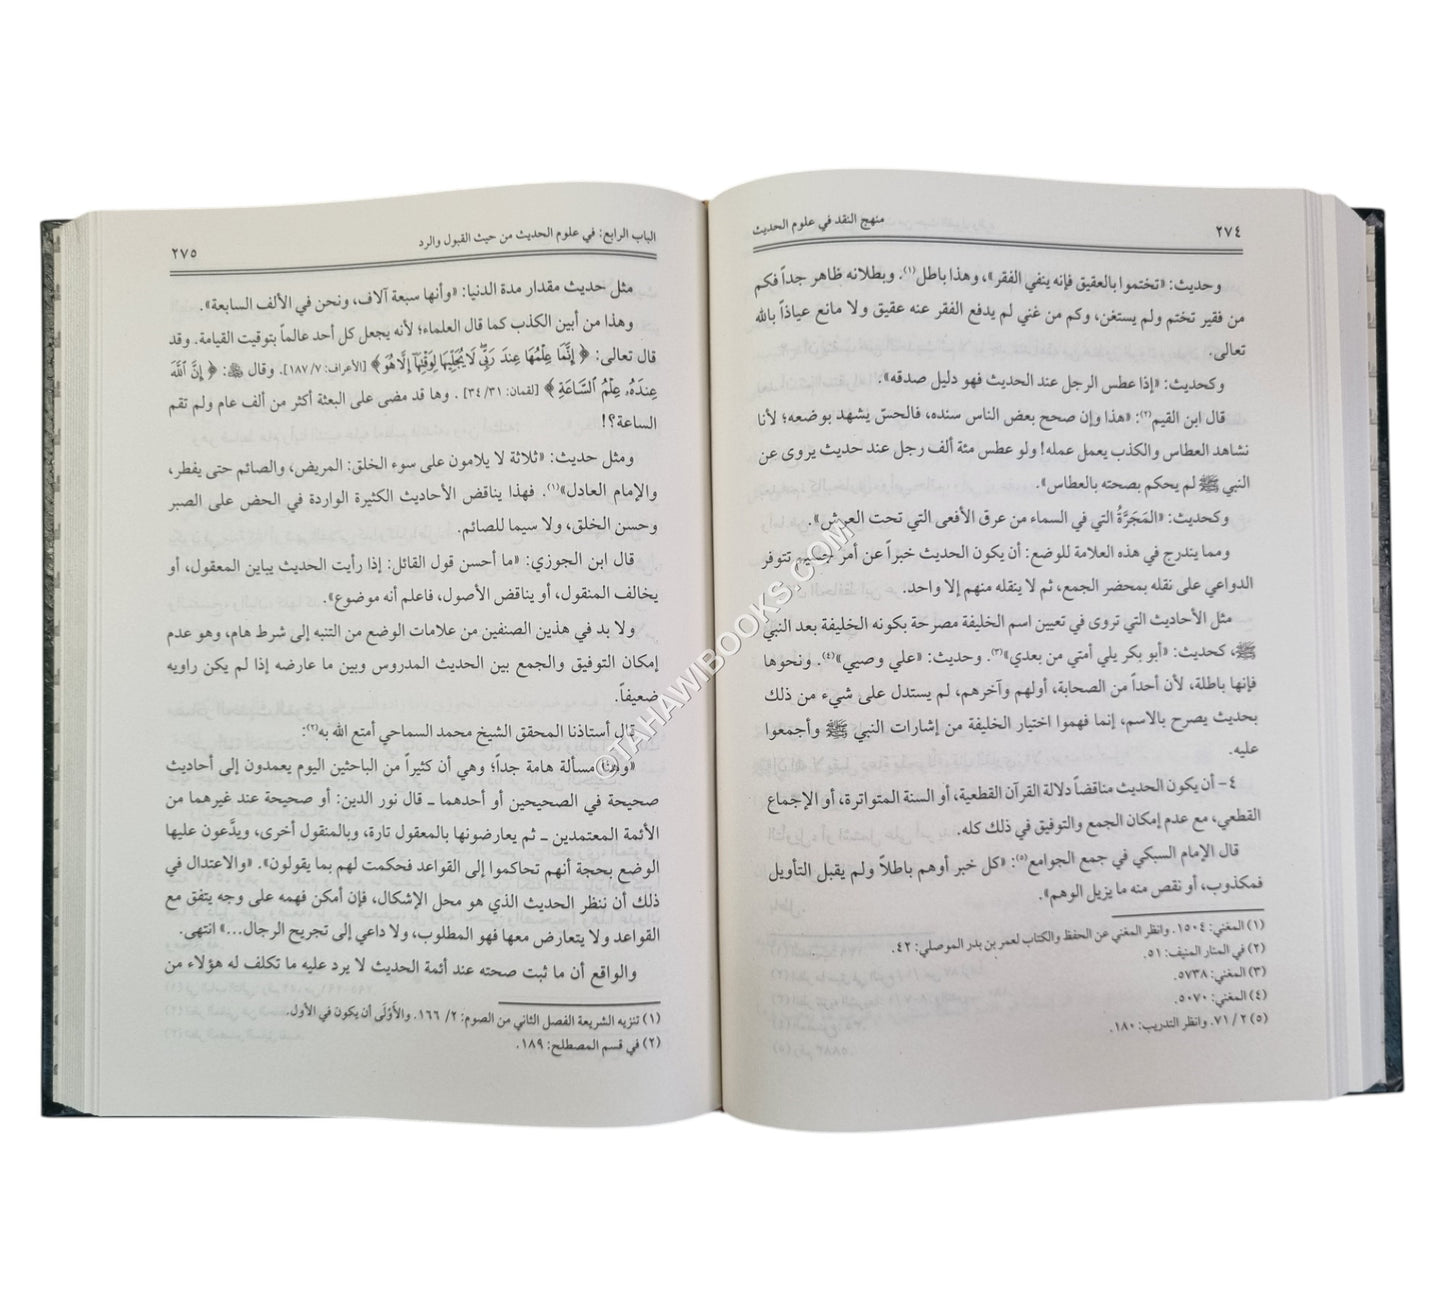 ٢٧٤
منهج النقد في علوم الحديث
وحديث: «تختموا بالعقيق فإنه ينفي الفقر»، وهذا باطل(١). وبطلانه ظاهر جداً فكم
من فقير تختم ولم يستغن، وكم من غني لم يدفع الفقر عنه عقيق ولا مانع عياذاً بالله
تعالى.
وكحديث: «إذا عطس الرجل عند الحديث فهو دليل صدقه».
قال ابن القيم(٢): «هذا وإن صحح بعض الناس سنده، فالحسّ يشهد بوضعه؛ لأنا
نشاهد العطاس والكذب يعمل عمله! ولو عطس مئة ألف رجل عند حديث يروى عن
النبي ﷺ لم يحكم بصحته بالعطاس».
وكحديث: «المَجَرَّةُ التي في السماء من عرق الأفعى التي تحت العرش».
ومما يندرج في هذه العلامة للوضع: أن يكون الحديث خبراً عن أمر جسيم تتوفر
الدواعي على نقله بمحضر الجمع، ثم لا ينقله منهم إلا واحد.
مثل الأحاديث التي تروى في تعيين اسم الخليفة مصرحة بكونه الخليفة بعد النبي
ﷺ، كحديث: «أبو بكر يلي أمتي من بعدي»(٣). وحديث: «علي وصيي»(٤). ونحوها
فإنها باطلة، لأن أحداً من الصحابة، أولهم وآخرهم، لم يستدل على شيء من ذلك
بحديث يصرح بالاسم، إنما فهموا اختيار الخليفة من إشارات النبي ﷺ وأجمعوا
عليه.
٤- أن يكون الحديث مناقضاً دلالة القرآن القطعية، أو السنة المتواترة، أو الإجماع
القطعي، مع عدم إمكان الجمع والتوفيق في ذلك كله.
قال الإمام السبكي في جمع الجوامع(٥): «كل خبر أوهم باطلاً ولم يقبل التأويل
فمكذوب، أو نقص منه ما يزيل الوهم».
(١) المغني: ١٥٠٤. وانظر المغني عن الحفظ والكتاب لعمر بن بدر الموصلي: ٤٢.
(٢) في المنار المنيف: ٥١.
(٣) المغني: ٥٧٣٨.
(٤) المغني: ٥٠٧٠.
(٥) ٢/ ٧١. وانظر التدريب: ١٨٠.
الباب الرابع: في علوم الحديث من حيث القبول والرد
٢٧٥
مثل حديث مقدار مدة الدنيا: «وأنها سبعة آلاف، ونحن في الألف السابعة».
وهذا من أبين الكذب كما قال العلماء؛ لأنه يجعل كل أحد عالماً بتوقيت القيامة. وقد
قال تعالى: ﴿ إِنَّمَا عِلْمُهَا عِندَ رَبِّي لَا يُجَلِّيهَا لِوَقْتِهَا إِلَّا هُوَ ﴾ [الأعراف: ٧/ ١٨٧]. وقال ﷺ: ﴿ إِنَّ اللَّهَ
عِندَهُ عِلْمُ السَّاعَةِ ﴾ [لقمان: ٣١/ ٣٤] . وها قد مضى على البعثة أكثر من ألف عام ولم تقم
الساعة؟!
ومثل حديث: «ثلاثة لا يلامون على سوء الخلق: المريض، والصائم حتى يفطر،
والإمام العادل»(١). فهذا يناقض الأحاديث الكثيرة الواردة في الحض على الصبر
وحسن الخلق، ولا سيما للصائم.
قال ابن الجوزي: «ما أحسن قول القائل: إذا رأيت الحديث يباين المعقول، أو
يخالف المنقول، أو يناقض الأصول، فاعلم أنه موضوع».
ولا بد في هذين الصنفين من علامات الوضع من التنبه إلى شرط هام، وهو عدم
إمكان التوفيق والجمع بين الحديث المدروس وبين ما عارضه إذا لم يكن راويه
ضعيفاً.
قال أستاذنا المحقق الشيخ محمد السماحي أمتع الله به(٢):
«وهنا مسألة هامة جداً؛ وهي أن كثيراً من الباحثين اليوم يعمدون إلى أحاديث
صحيحة في الصحيحين أو أحدهما ــ قال نور الدين: أو صحيحة عند غيرهما من
الأئمة المعتمدين ــ ثم يعارضونها بالمعقول تارة، وبالمنقول أخرى، ويدَّعون عليها
الوضع بحجة أنهم تحاكموا إلى القواعد فحكمت لهم بما يقولون». «والاعتدال في
ذلك أن ننظر الحديث الذي هو محل الإشكال، فإن أمكن فهمه على وجه يتفق مع
القواعد ولا يتعارض معها فهو المطلوب، ولا داعي إلى تجريح الرجال...» انتهى.
والواقع أن ما ثبت صحته عند أئمة الحديث لا يرد عليه ما تكلف له هؤلاء من
(١) تنزيه الشريعة الفصل الثاني من الصوم: ٢/ ١٦٦. والأَوْلَى أن يكون في الأول.
(٢) في قسم المصطلح: ١٨٩.
©TAHAWIBOOKS.COM